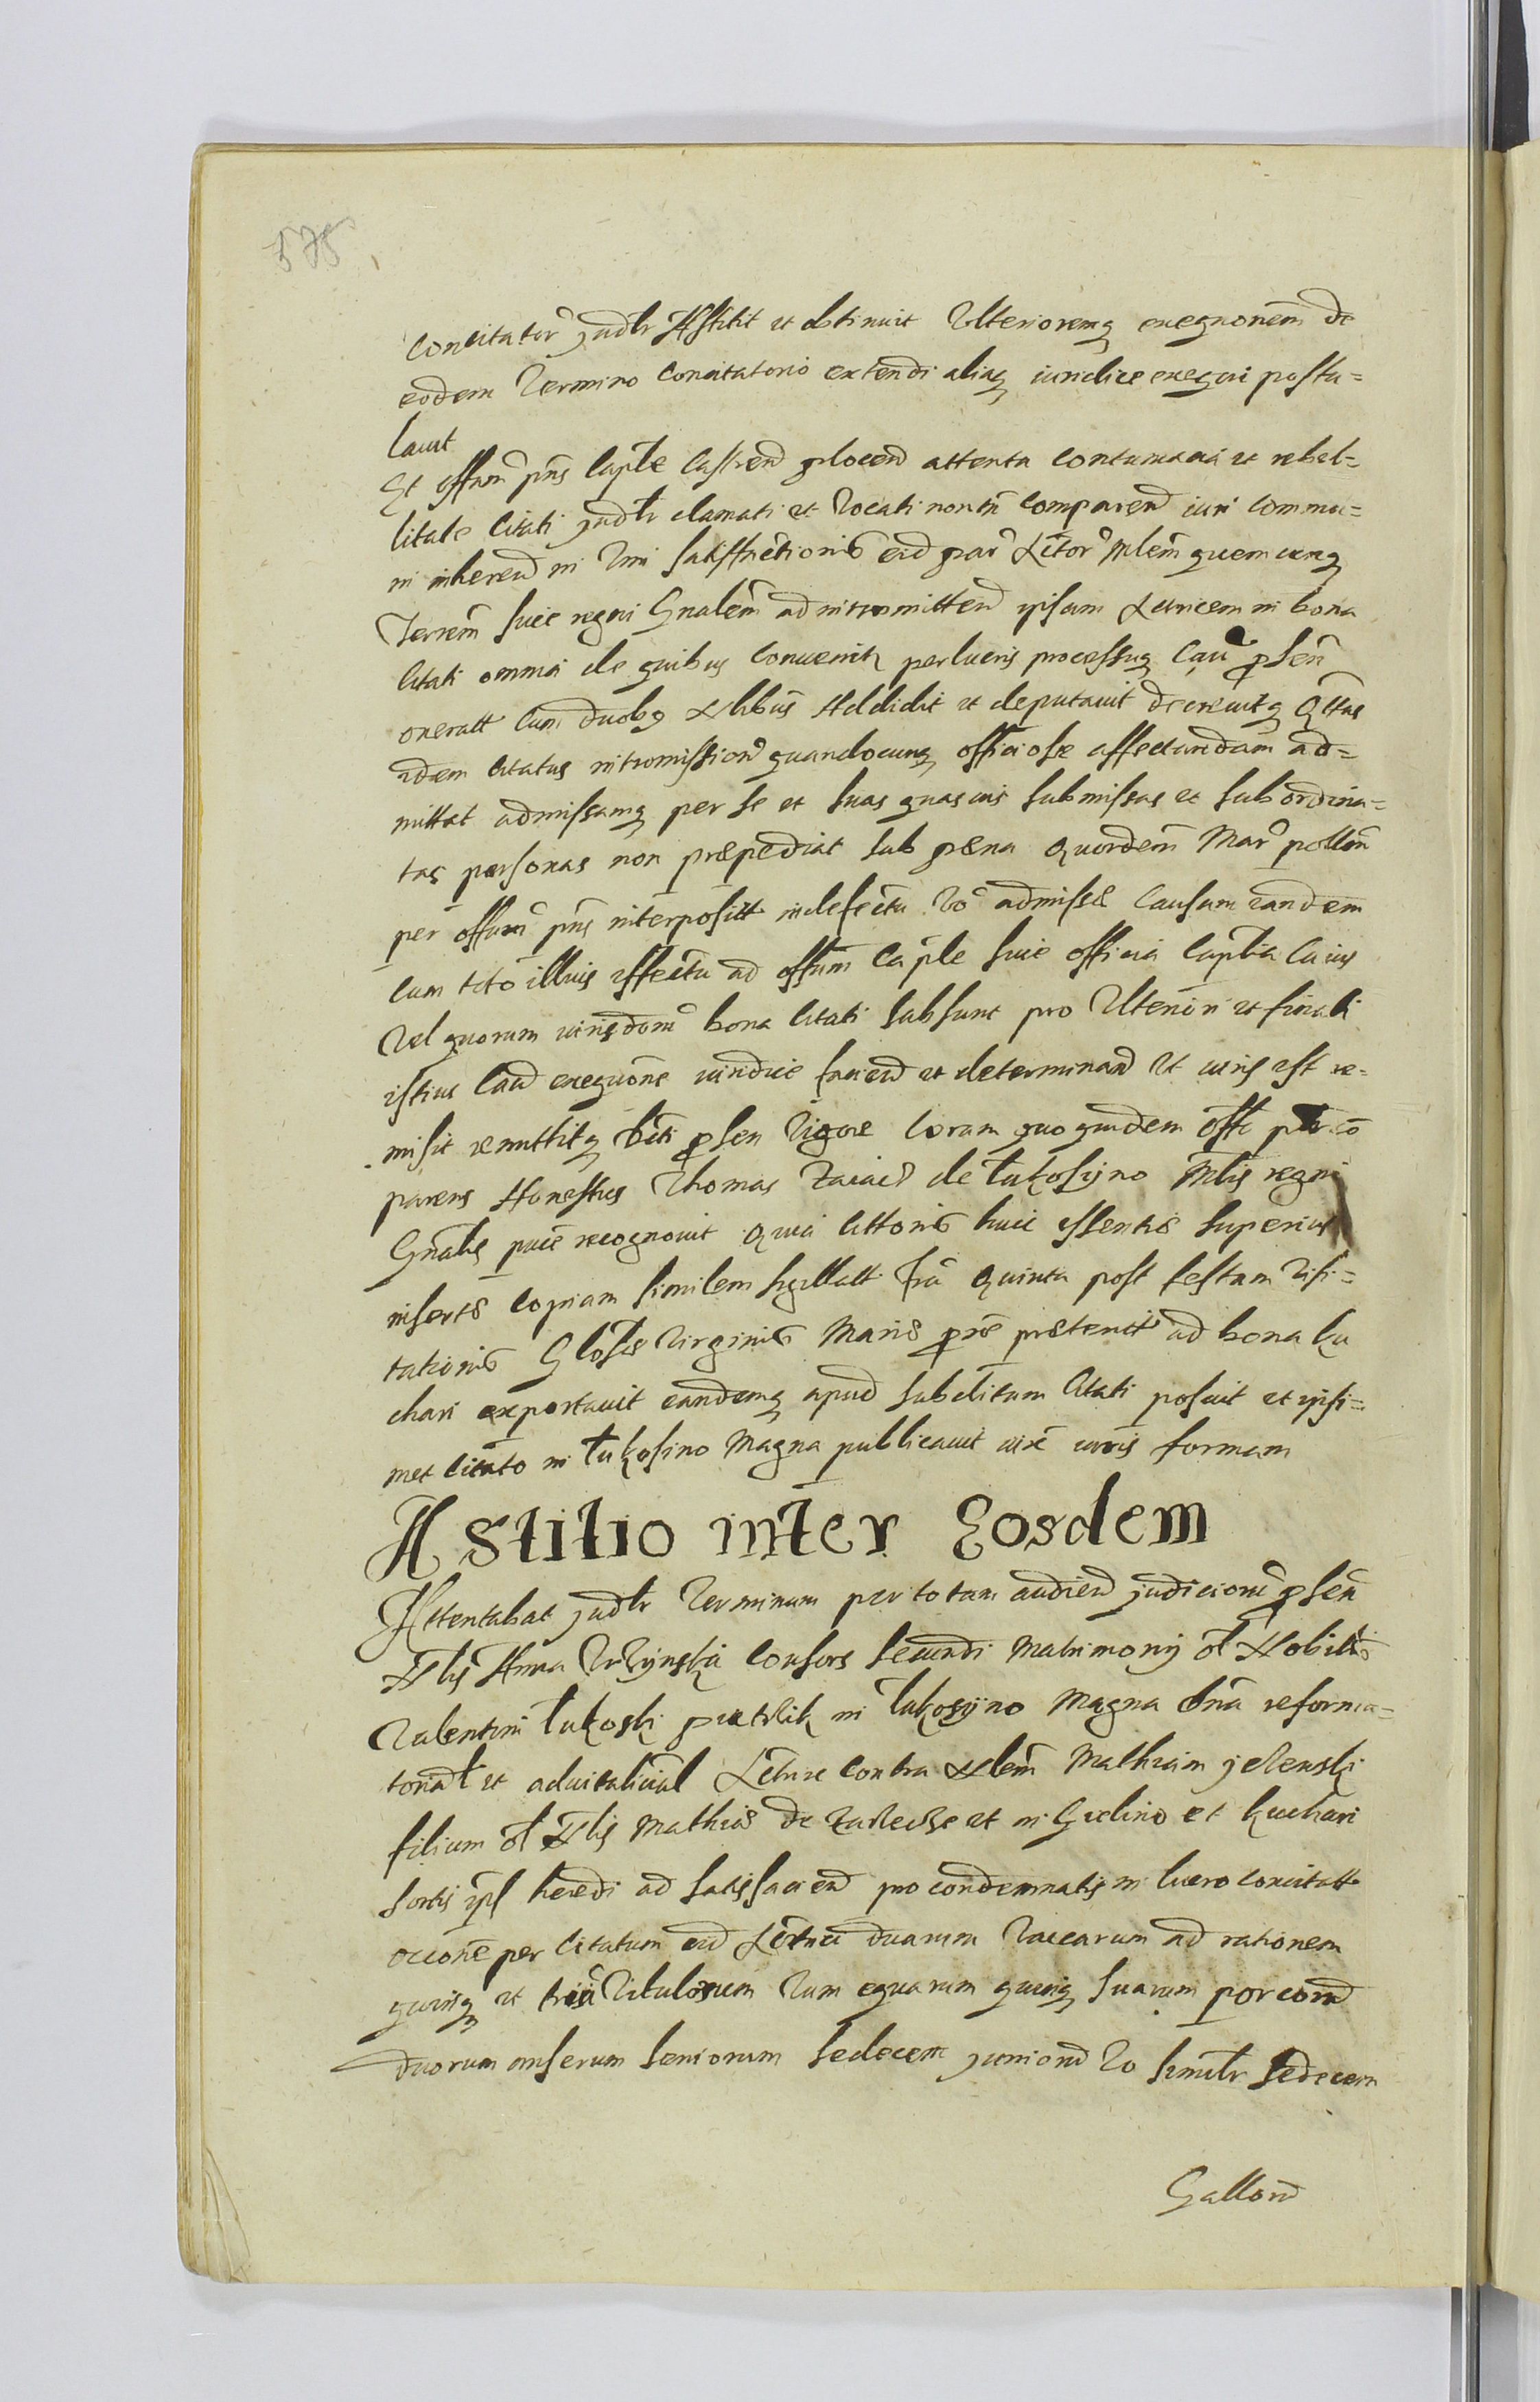 575
Concitator judlr Astitit et obtinuit Ulterioremq exeqnonem de
eodem Termino concitatorio extendi aliaq iuridice exequi postu=
lauit
Et offium pns Capłe Castren plocen attenta contumacia et rebel=
litate Citati judlr clamati et vocati non tn comparen iuri commu=
ni inheren in vim satisfactionis eid par Actor Mlem quemcunq
Terrem siue regni Gnalem ad intromitten ipsam Actricem in bona
Citati omnia de quibus conuenit perlucris processuq Cau psen
oneratt cum duobq Nlibus Addidit et deputauit decreuitq Qttus
idem citatus intromission quandocunq officiose affectandam ad=
mittat admissamq per se et suas quasuis submissas et subordina=
tas personas non præpediat sub pæna Quordem Mar pollon
per offium pns interposit in defectu vo admissæ Causam eandem
cum toto illius effectu ad offium Capłe siue officia Caplia Cuius
Vel quorum iurisdoni bona Citati subsunt pro Ulteriori et finali
istius Cau exequone iuridice facien et determinan Ut iuris est re=
misit remittitq pti psen vigore Coram quo quidem offo per co
parens Honestus Thomas Zaiac de Łukosyno Mlis regni
Gnalis puice recognouit Quia Citonis huic essentiæ superius
insertæ copiam similem sigillatt Fria Quinta post festum Visi=
tationis Glosæ Virginis Mariæ pxie præterit ad bona Ku
chari exportauit eandemq apud subditum Citati posuit et ipsi=
met Citato in Łukosino Magna publicauit iuxe iuris formam
Astitio inter Eosdem
Attentabat judlr Terminum per totam audien judicior psen
Nlis Anna consors secundi Matrimonij ol Nobilis
Valentini Łukoski in Łukosyno Magna bna reforma=
torial et aduitalicial Actrix Contra Nlem Mathiam jelenski
filium ol Nlis Mathiæ de et in Golino et Kuchari
sortis ipl heredi ad satisfacien pro condemnatis in lucro concitatt
occone per Citatum eid Actrici duarum Vaccarum ad rationem
quinq et triu Vitulorum Tum equarum quinq suarum porcor
duorum anserum seniorum sedecem junior vo similr sedecem
Gallor